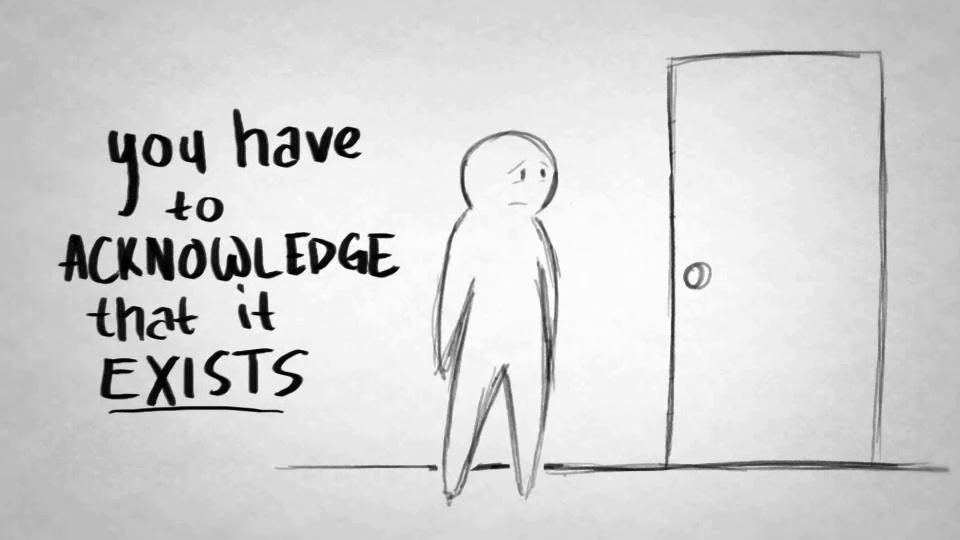 you have
to
ACKNOWLEDGE
that it
EXISTS